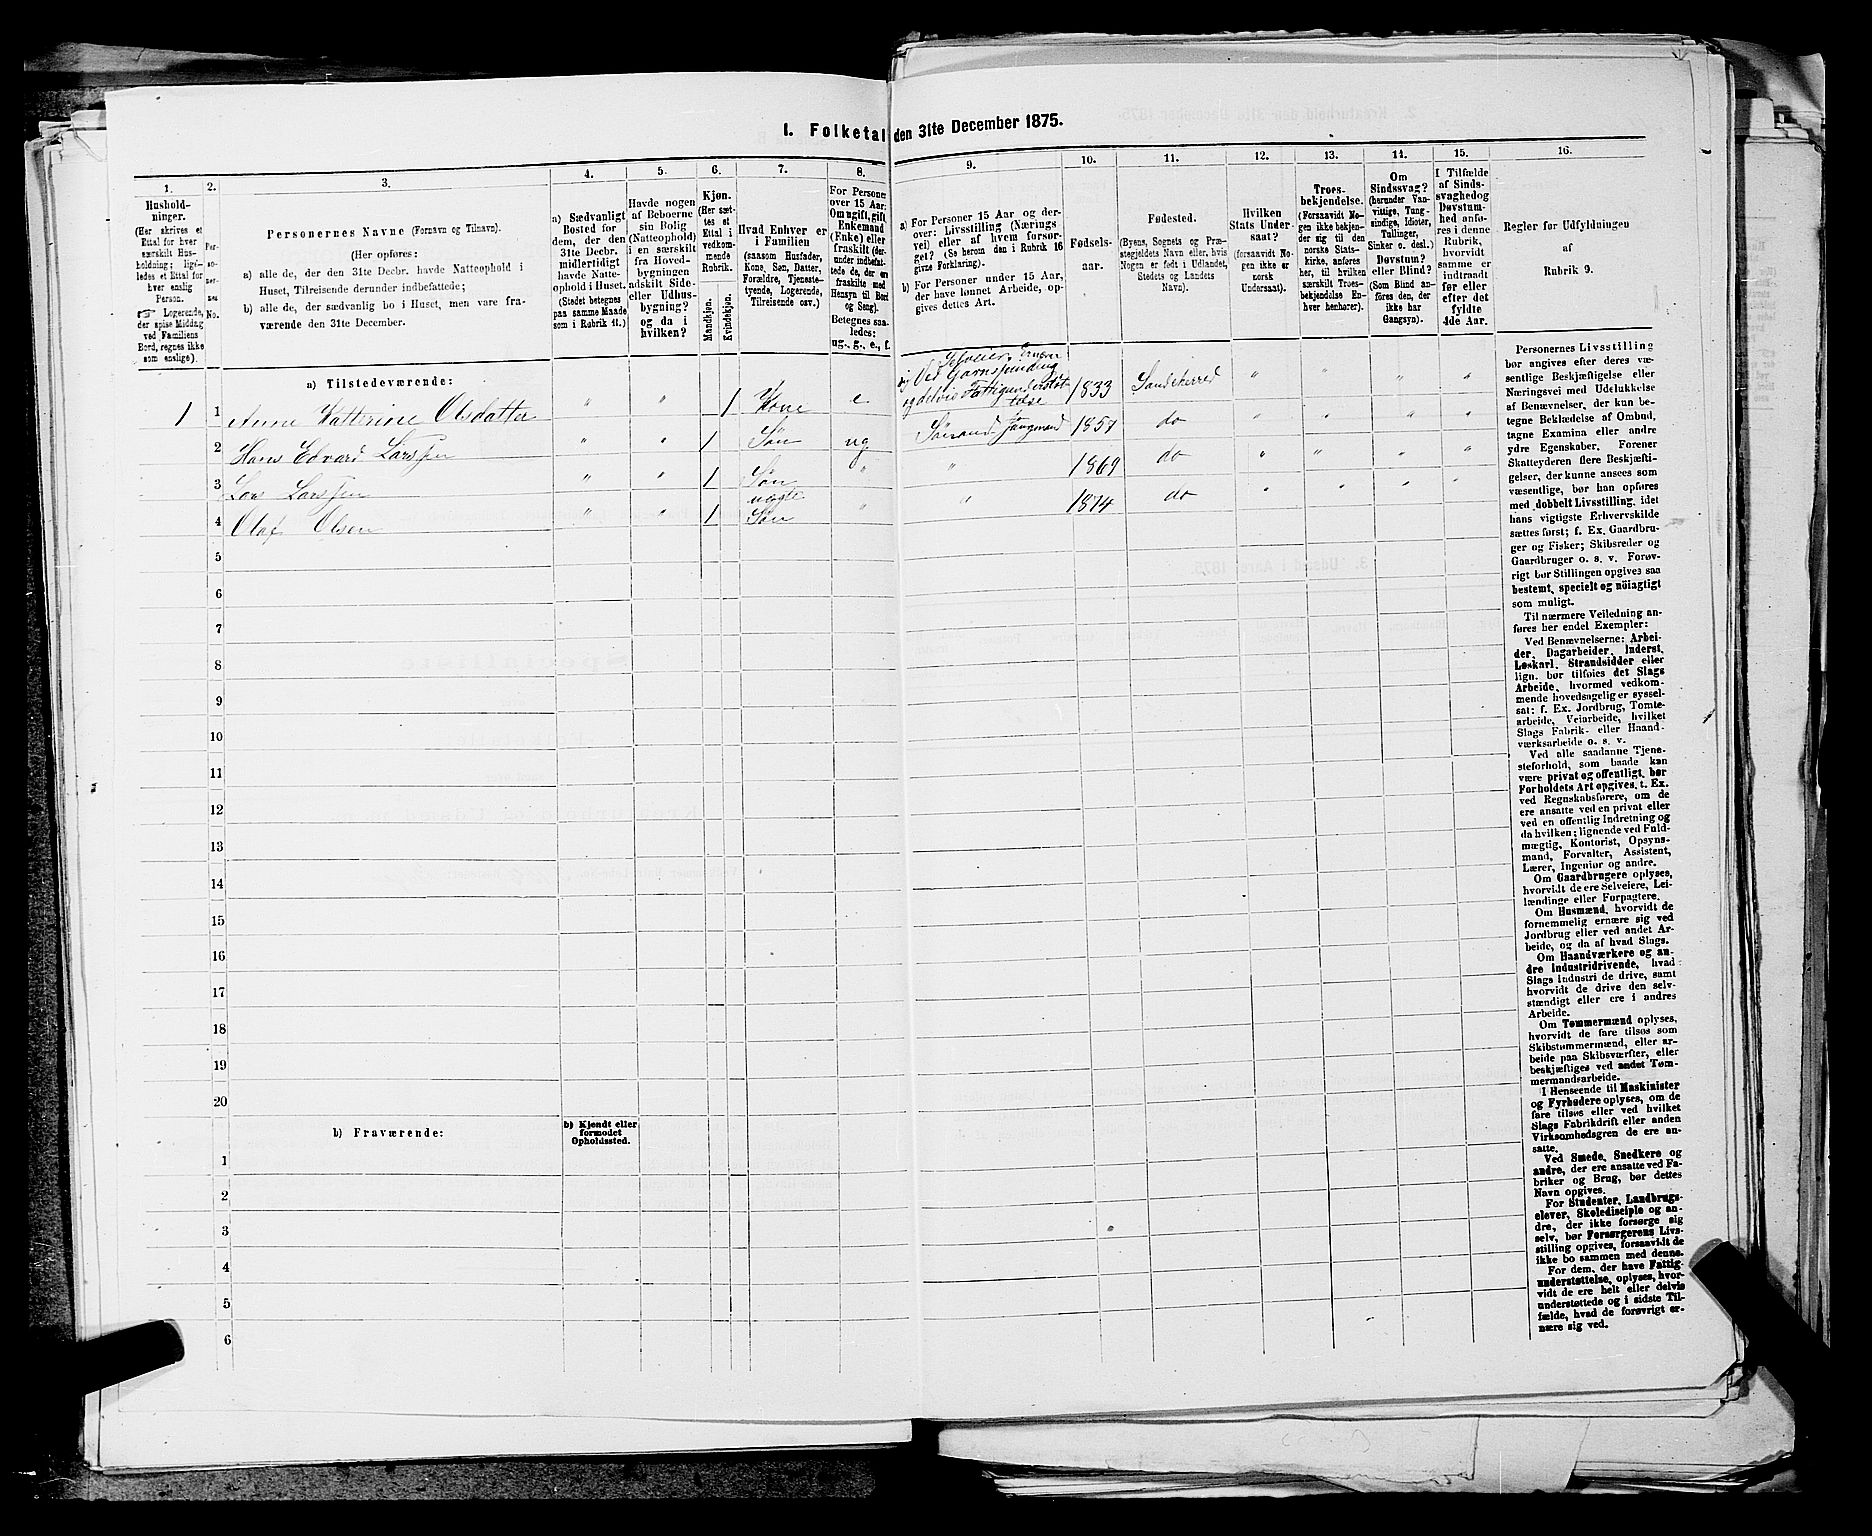 I. Folketal den 31te December 1875.
1.
Hushold-
ninger.
(Her skrives et
Ettal for hver
særskilt Hus-
holdning; ligé-
ledes et Ettal for
hver enslig
Person.
Logerende,
der spise Middag
ved Familiens
Bord, regnes ikke
som enslige).
2.
Per-
so-
ner-
nes
No.
3.
Personernes Navne (Fornavn og Tilnavn).
(Her opføres:
a) alle de, der den 31te Decbr. havde Natteophold i
Huset, Tilreisende derunder indbefattede;
b) alle de, der sædvanlig bo i Huset, men vare fra-
værende den 31te December.
4.
a) Sædvanligt
Bosted for
dem, der den
31te Decbr.
midlertidigt
havde Natte-
ophold i Huset.
(Stedet betegnes
paa samme Maade
som i Rubrik 11.)
5.
Havde nogen
af Beboerne
sin Bolig
(Natteophold)
i en særskilt
fra Hoved-
bygningen
adskilt Side-
eller Udhus-
bygning?
og da i
hvilken?
6.
Kjøn.
(Her sæt-
tes et
Ettal i
vedkom-
mende
Rubrik.
Mandkjøn.
Kvindekjøn.
7.
Hvad Enhver er
i Familien
(saasom Husfader,
Kone, Søn, Datter,
Forældre, Tjeneste-
tyende, Logerende,
Tilreisende osv.)
8.
For Personer
over 15 Aar:
Om ugift, gift,
Enkemand
(Enke) eller
fraskilt (der-
under indbefat-
tede de, der ere
fraskilte med
Hensyn til Bord
og Seng).
Betegnes saa-
ledes:
ug., g., e., f.
9.
a) For Personer 15 Aar og der-
over: Livsstilling (Nærings-
vei) eller af hvem forsør-
get? (Se herom den i Rubrik 16
givne Forklaring).
b) For Personer under 15 Aar,
der have lønnet Arbeide, op-
gives dettes Art.
10.
Fødsels-
aar.
11.
Fødested.
(Byens, Sognets og Præ-
stegjeldets Navn eller, hvis
Nogen er født i Udlandet,
Stedets og Landets
Navn).
12.
Hvilken
Stats Under-
saat?
(forsaavidt No-
gen ikke er
norsk
Undersaat).
13.
Troes-
bekjendelse.
(Forsaavidt No-
gen ikke bekjen-
der sig til den
norske Stats-
kirke, anføres
her, til hvilken
særskilt Troes-
bekjendelse En-
hver henhører).
14.
Om
Sindssvag?
(herunder Van-
vittige, Tung-
sindige, Idioter,
Tullinger,
Sinker o. desl.)
Døvstum?
eller Blind?
(Som Blind an-
føres den, der
ikke har
Gangsyn).
15.
I Tilfælde
af Sinds-
svaghed og
Døvstum-
hed anfø-
res i denne
Rubrik,
hvorvidt
samme er
indtraadt
før eller
efter det
fyldte
4de Aar.
16.
Regler for Udfyldningen
af
Rubrik 9.
a) Tilstedeværende:
Selveier,
Ved Garnspinding
og delvis Fattigunderstøt-
telse
1 1 Anne Katterine Olsdatter " " 1 Kone e 1833 Sandeherred " " " "
2 Hans Edvard Larssen " " 1 Søn ug Sømand Jungmand 1857 do " " " "
3 Lars Larssen " " 1 Søn " " 1869 do " " " "
4 Olaf Olsen " " 1 nogle Søn " " 1874 do " " " "
5
6
7
8
9
10
11
12
13
14
15
16
17
18
19
20
b) Fraværende:
b) Kjendt eller
formodet
Opholdssted.
1
2
3
4
5
6
Personernes Livsstilling
bør angives efter deres væ-
sentlige Beskjæftigelse eller
Næringsvei med Udelukkelse
af Benævnelser, der kun be-
tegne Beklædelse af Ombud,
tagne Examina eller andre
ydre Egenskaber. Forener
Skatteyderen flere Beskjæfti-
gelser, der kunne ansees som
væsentlige, bør han opføres
med dobbelt Livsstilling, idet
hans vigtigste Erhvervskilde
sættes først; f. Ex. Gaardbru-
ger og Fisker; Skibsreder og
Gaardbruger o. s. v. Forøv-
rigt bør Stillingen opgives saa
bestemt, specielt og nöiagtigt
som muligt.
Til nærmere Veiledning an-
føres her endel Exempler:
Ved Benævnelserne: Arbei-
der, Dagarbeider, Inderst,
Løskarl, Strandsidder eller
lign. bør tilføies det Slags
Arbeide, hvormed vedkom-
mende hovedsagelig er syssel-
sat: f. Ex. Jordbrug, Tomte-
arbeide, Veiarbeide, hvilket
Slags Fabrik- eller Haand-
værksarbeide o. s. v.
Ved alle saadanne Tjene-
steforhold, som baade kan
være privat og offentligt, bør
Forholdets Art opgives, t. Ex.
ved Regnskabsførere, om de
ere ansatte ved en privat eller
ved en offentlig Indretning og
da hvilken; lignende ved Fuld-
mægtig, Kontorist, Opsyns-
mand, Forvalter, Assistent,
Lærer, Ingeniør og andre.
Om Gaardbrugere oplyses,
hvorvidt de ere Selveiere, Lei-
lændinge eller Forpagtere.
Om Husmænd, hvorvidt de
fornemmelig ernære sig ved
Jordbrug eller ved andet Ar-
beide, og da af hvad Slags.
Om Haandværkere og an-
dre Industridrivende, hvad
Slags Industri de drive, samt
hvorvidt de drive den selv-
stændigt eller ere i andres
Arbeide.
Om Tømmermænd oplyses,
hvorvidt de fare tilsøs som
Skibstømmermænd, eller ar-
beide paa Skibsværfter, eller
beskjæftiges ved andet Tøm-
mermandsarbeide.
I Henseende til Maskinister
og Fyrbødere oplyses, om de
fare tilsøs eller ved hvilket
Slags Fabrikdrift eller anden
Virksomhedsgren de ere an-
satte.
Ved Smede, Snedkere og
andre, der ere ansatte ved Fa-
briker og Brug, bør dettes
Navn opgives.
For Studenter, Landbrugs-
elever, Skoledisciple og an-
dre, der ikke forsørge sig
selv, bør Forsørgerens Livs-
stilling opgives, forsaavidt de
ikke bo sammen med denne.
For dem, der have Fattig-
understøttelse, oplyses, hvor-
vidt de ere helt eller delvis
understøttede og i sidste Til-
fælde, hvad de forøvrigt er-
nære sig ved.